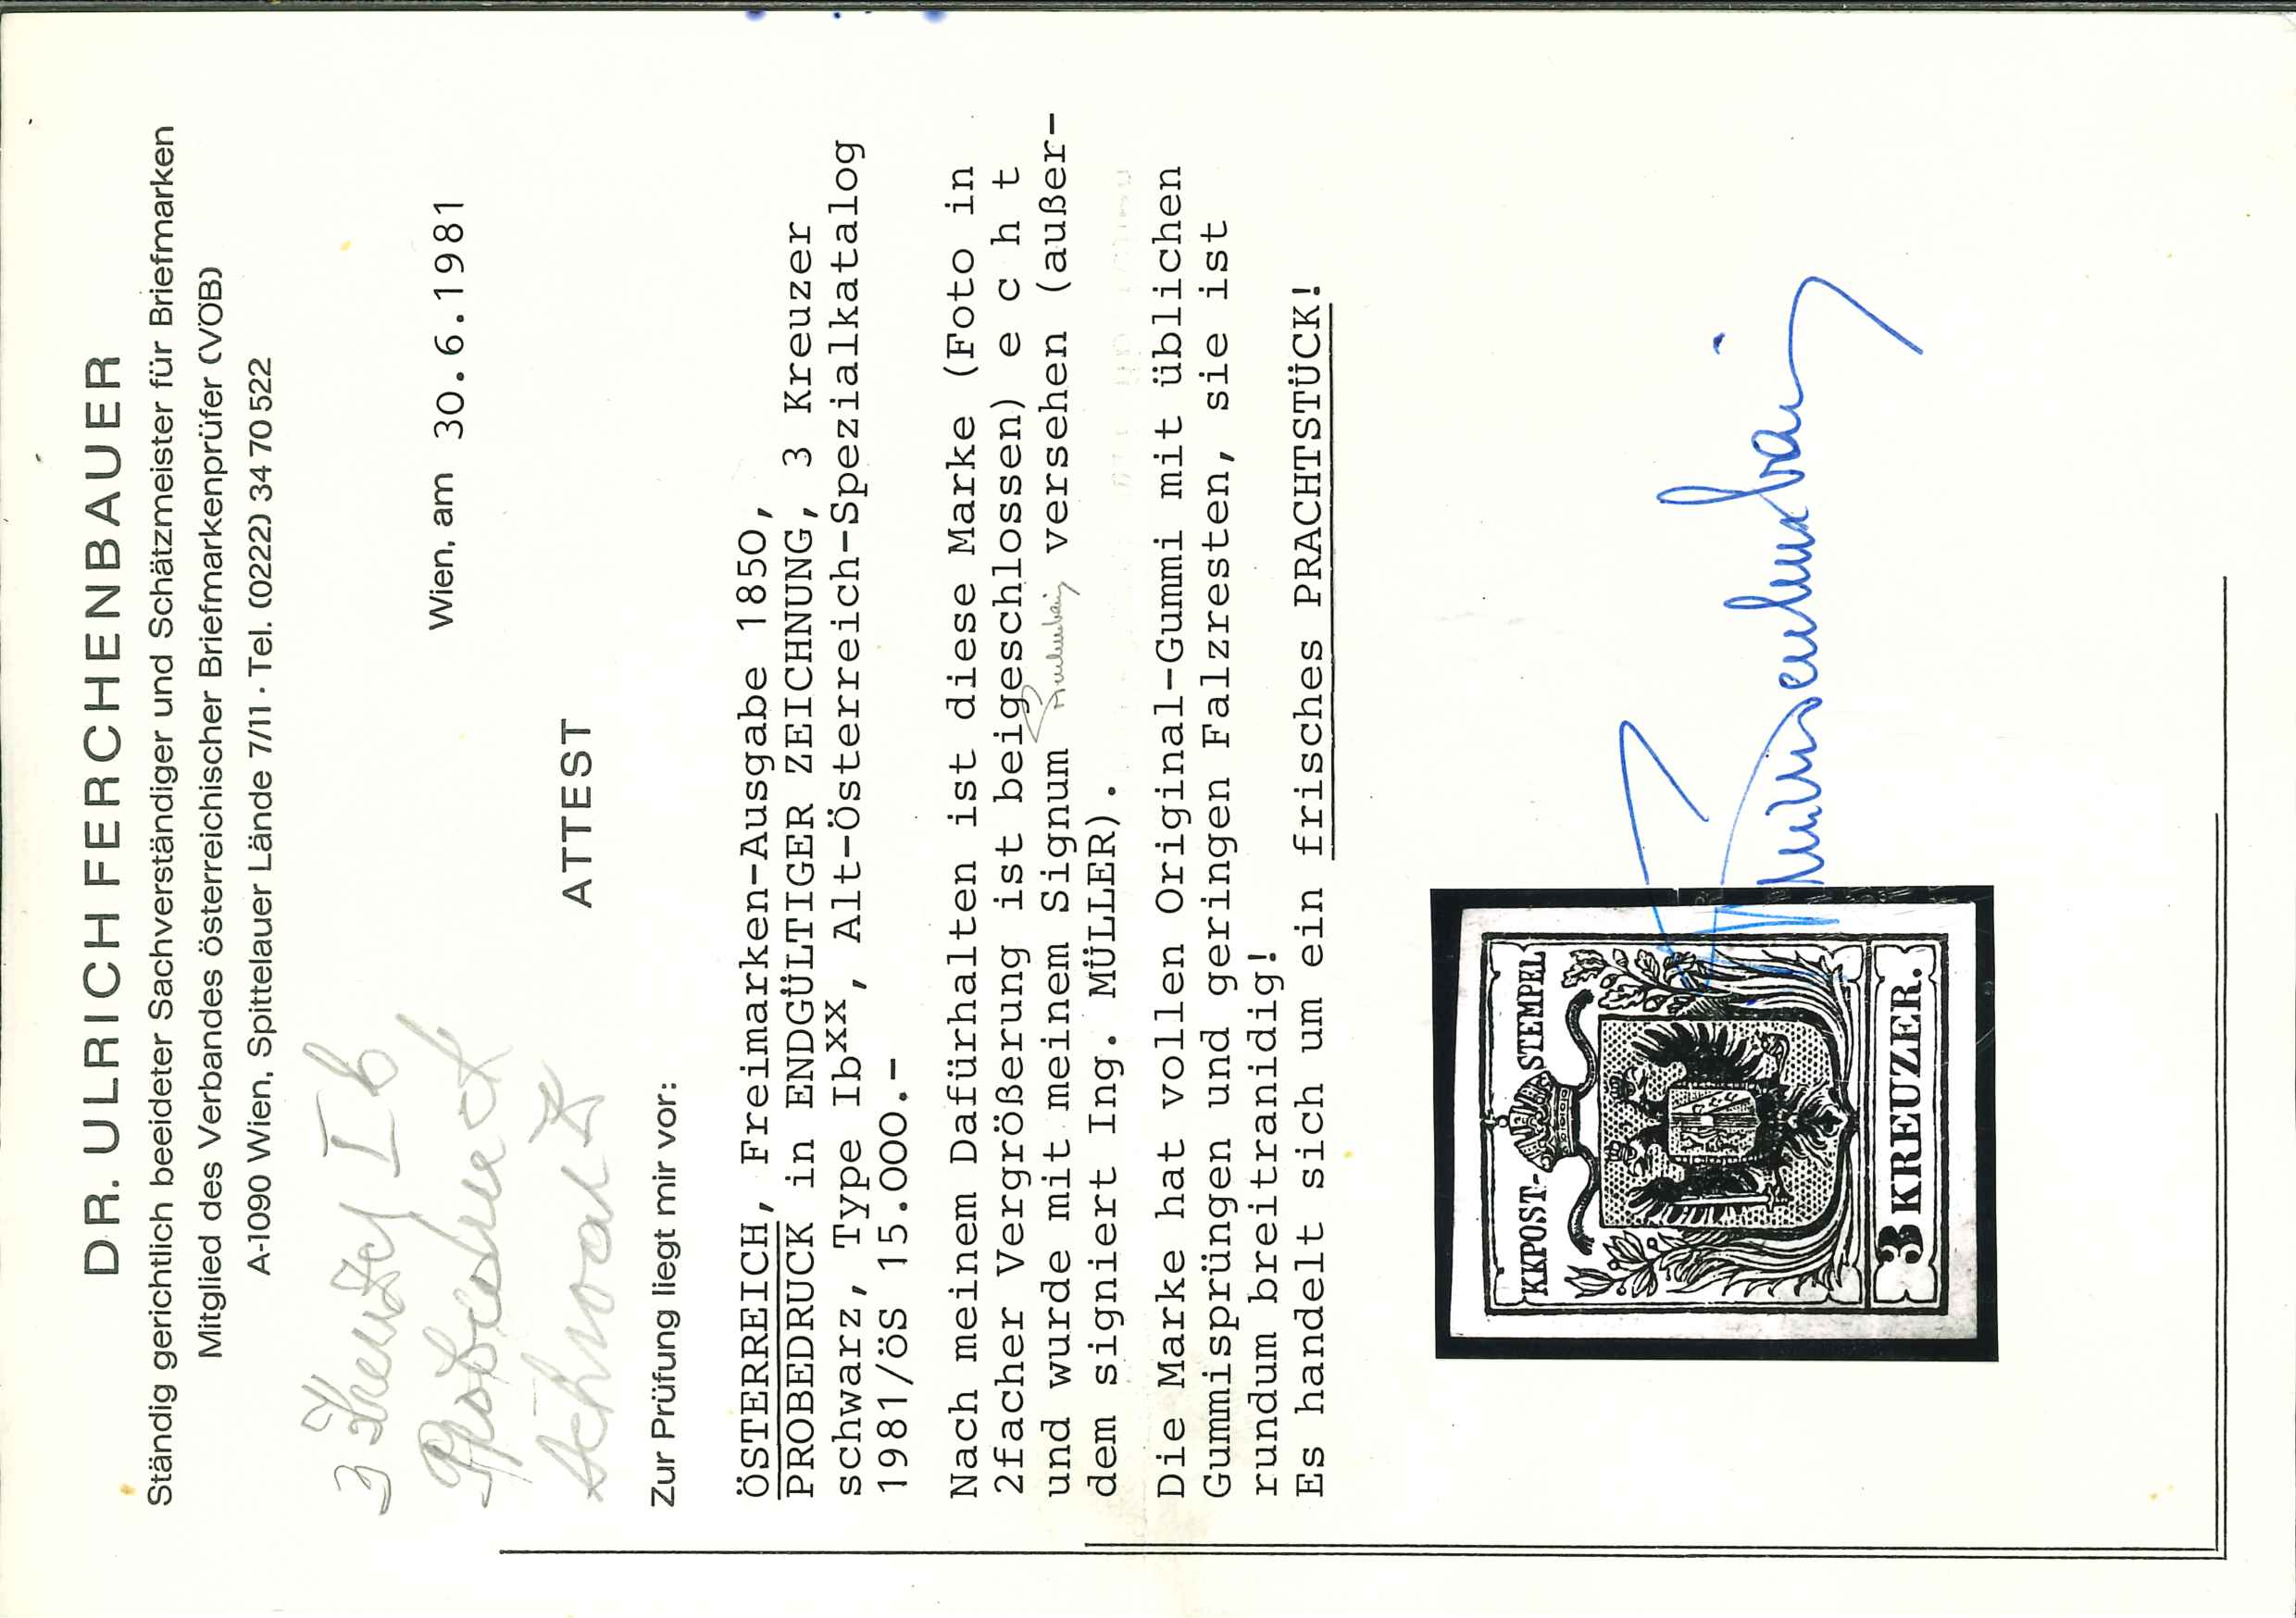 DR. ULRICH FERCHENBAUER
Ständig gerichtlich beeideter Sachverständiger und Schätzmeister für Briefmarken
Mitglied des Verbandes österreichischer Briefmarkenprüfer (VÖB)
A-1090 Wien, Spittelauer Lände 7/11 · Tel. (0222) 34 70 522
3 Kreuzer I b
Probedruck
schwarz
Wien, am 30.6.1981
ATTEST
Zur Prüfung liegt mir vor:
ÖSTERREICH, Freimarken-Ausgabe 1850,
PROBEDRUCK in ENDGÜLTIGER ZEICHNUNG, 3 Kreuzer
schwarz, Type Ibxx, Alt-Österreich-Spezialkatalog
1981/öS 15.000.-
Nach meinem Dafürhalten ist diese Marke (Foto in
2facher Vergrößerung ist beigeschlossen) e c h t
und wurde mit meinem Signum Ferchenbauer versehen (außer-
dem signiert Ing. MÜLLER).
Die Marke hat vollen Original-Gummi mit üblichen
Gummisprüngen und geringen Falzresten, sie ist
rundum breitranidig!
Es handelt sich um ein frisches PRACHTSTÜCK!
KKPOST-STEMPEL
3 KREUZER.
Ferchenbauer